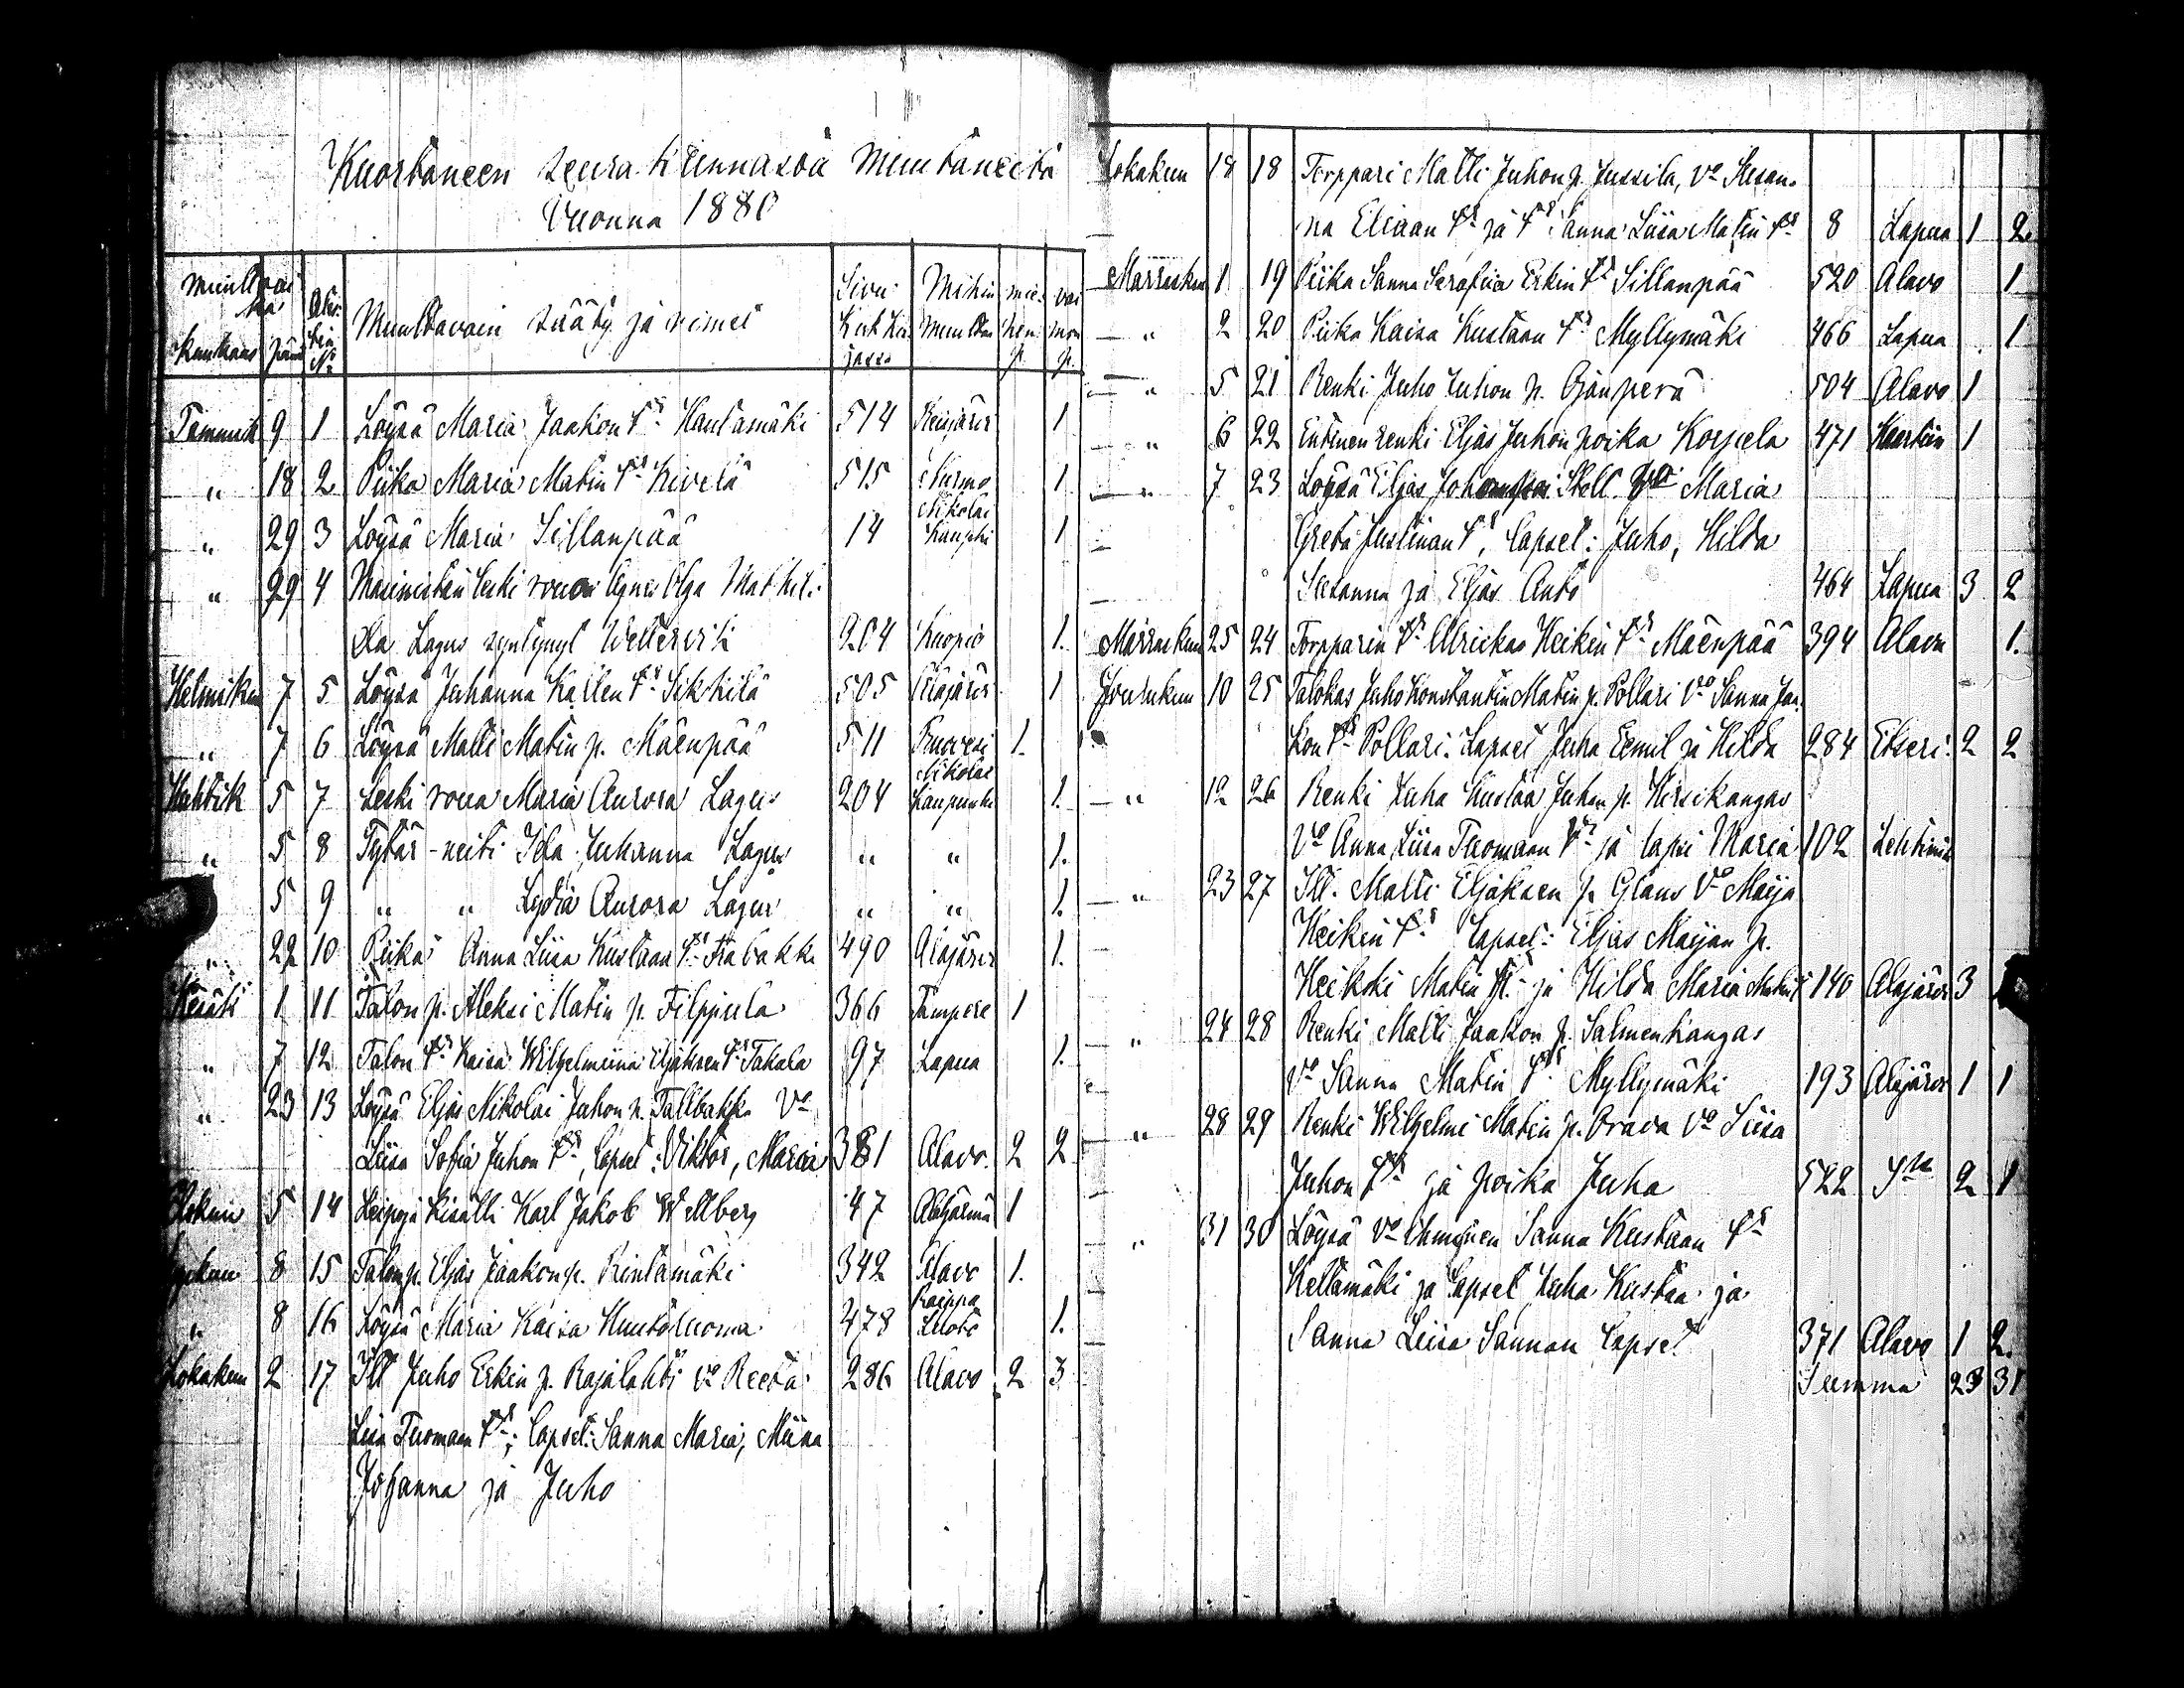 Kuortaneen seurakunnasta muuttaneita
Vuonna 1880
Muuttavain sääty ja nimet
Sivu Kirkkirjassa
Mihin muuttan
miehen p.
vaimon p.
Tammik 9 1 Löysä Maria Jaakon t:r Hautamäki 514 1
" 18 2 Piika Maria Matin t:r Kivelä 515 Nurmo 1
" 29 3 Löysä Maria Sillanpää 14 Nikolai kaupki 1
" 29 4 leski rouva Agnes Olga Mathil-
da Lagus syntynyt 204 Kuopio 1.
Helmikuu 7 5 Löysä Juhanna Kallen t:r 505 Alajärvi 1
" 7 6 Löysä Matti Matin p. Mäenpää 511 Ruovesi 1.
Huhtik 5 7 Leski rouva Maria Aurora Lagus 204 Nikolai kaupunki 1.
" 5 8 Tytär-neiti Ida Juhanna Lagus " " 1.
5 9 " " Lydia Aurora Lagus " " 1.
" 22 10 Piika Anna Liisa Kustaan t:r 490 Alajärvi 1.
Kesäk 1 11 Talon p. Aleksi Matin p. Filppula 366 Tampere 1
" 7 12 Talon t:r Kaisa Wilhelmiina Eljaksen t:r Takala 97 Lapua 1.
" 23 13 Löysä Eljas Nikolai Juhon p. Tallbakka Vo
Liisa Sofia Juhon t:r, lapset: Viktor, Maria 381 Alavo. 2 2
Elokuu 5 14 kisälli Karl Jakob Wellberg 47 1
Syyskuu 8 15 Talon p. Eljas Jaakon p. Rintamäki 342 Alavo 1.
" 8 16 Löysä Maria Kaisa 478 1.
Lokakuu 2 17 Itl Juho Erkin p. Rajalahti vo Reeta 286 Alavo 2 3
Liisa Tuomaan t:r; lapset: Sanna Maria, Miina
Johanna ja Juho
Lokakuu 18 18 Torppari Matti Juhon p. Jussila, Vo Susan-
na Eliaan t:r ja t:r Sanna Liisa Matin t:r 8 Lapua 1 2.
Marraskuu 1 19 Piika Sanna Serafiia Erkin t:r Sillanpää 520 Alavo 1
" 2 20 Piika Kaisa Kustaan t:r Myllymäki 466 Lapua 1
" 5 21 Renki Juho Juhon p. Ojanperä 504 Alavo 1
" 6 22 Entinen renki Eljas Juhon poika Korpela 471 1
" 7 23 Löysä Eljas Skell Maria
Greta Justinan t:r, lapset: Juho, Hilda
Susanna ja Eljas Anto 464 Lapua 3 2
Marraskuu 25 24 Torpparin t:r Ulriekas Heikin t:r Mäenpää 394 Alavo 1.
Joulukuu 10 25 Talokas Juho Konstantin Matin p. Pollari Vo Sanna Jaa-
kon t:r Pollari. Lapset Juha Eemil ja Hilda 284 Etseri. 2 2
" 12 26 Renki Juha Kustaa Juhon p. Hirsikangas
Vo Anna Liisa Tuomaan t:r ja lapsi Maria 102
" 23 27 Itl. Matti Eljaksen p. Vo Maija
Heikin t:r Lapset: Eljas Maijan p.
Heikki Matin p. ja Hilda Maria Matin t 140 Alajärvi 3
" 24 28 Renki Matti Jaakon p. Salmenkangas
Vo Sanna Matin t:r Myllymäki 193 Alajärvi 1 1
" 28 29 Renki Wilhelmi Matin p. Orava Vo Liisa
Juhon t:r ja poika Juha 522 2 1
" 31 30 Löysä vo ihminen Sanna Kustaan t:r
Keltamäki ja lapset Juha Kustaa ja
Sanna Liisa Sannan lapset 371 Alavo 1 2.
Summa 23 31